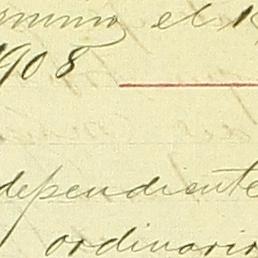 el 1
1908
dependiente
ordinario